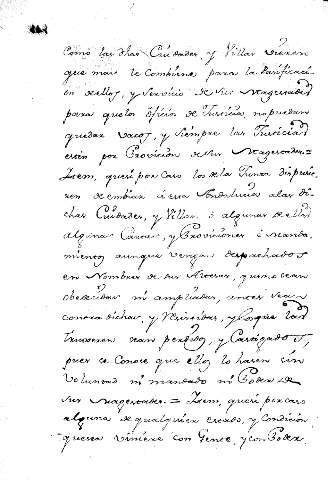 Como las dhas Ciudades, y Villas vieren
que mas le combiene para la Pacificaci
on de ellos, y servicio de sus Magestades
para que los oficios de Justicia, no puedan
quedar vacos, y siempre las Justicias
esten por Provicion de sus Magestades =
Item, que si por caso los de la Junta dispusie
ren de embiar á esta Andalucia a las di
chas Ciudades, y Villas, ó algunas de ellas
alguna Cartas, y Proviciones ó manda
mientos aunque vengan despachados
en Nombre de sus Altezas, que no sean
obedecidas ni cumplidas, antes sean
contradichas, y resistidas, y los que las
truxeren sean perdidos, y Castigados,
pues se Conoce que ellos lo hasen sin
Voluntad ni mandado ni Poder de
sus Magestades = Item, que si por caso
alguna de qualquier estado, y Condicion
que sea viniere con Gente, y con Poder